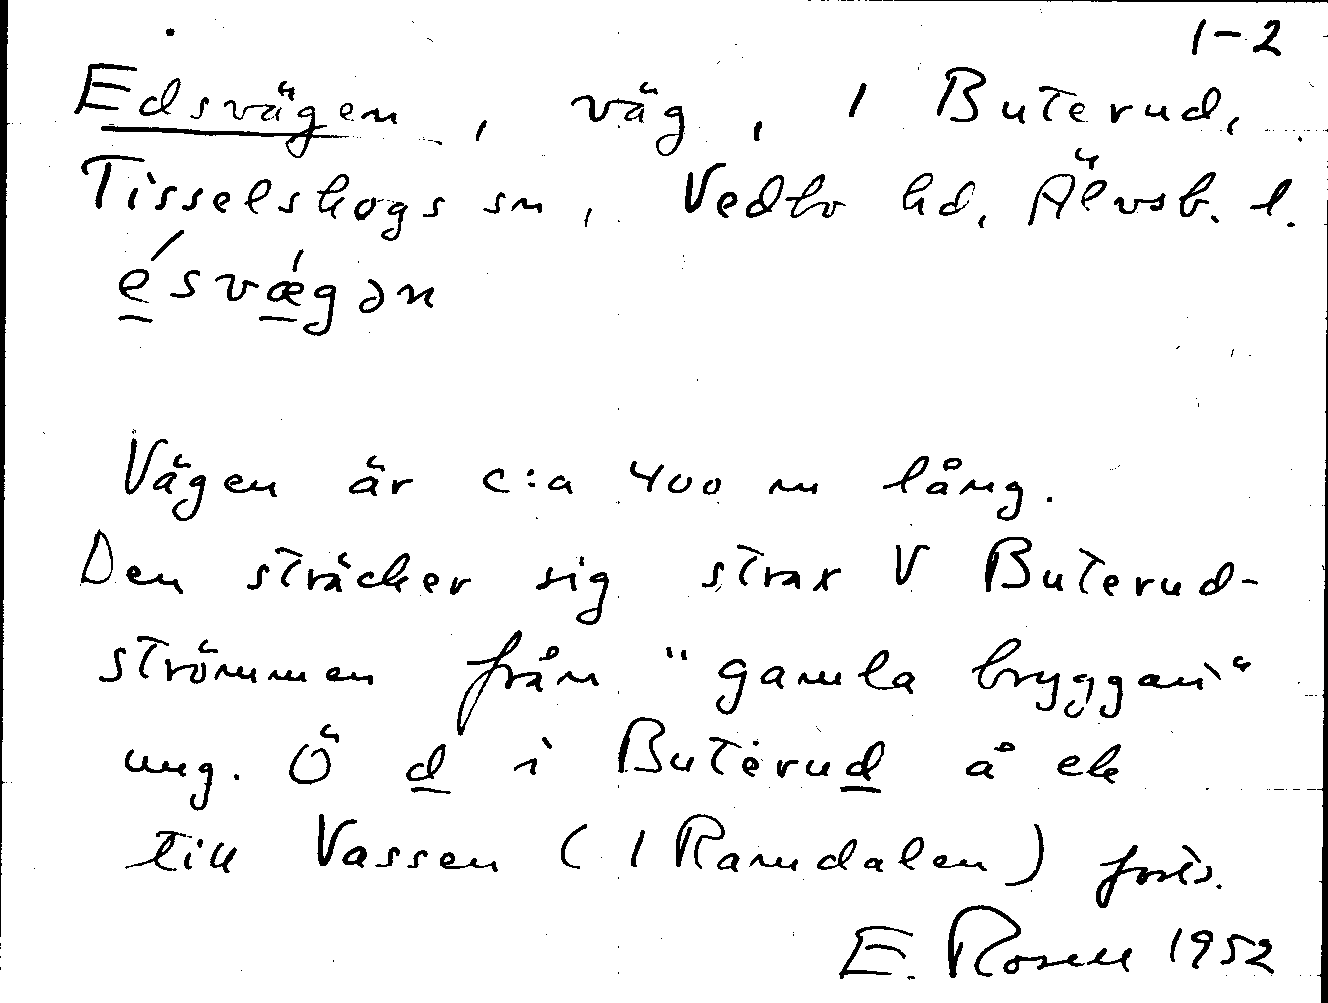 1-2
Edsvägen, väg, 1 Buterud,
Tisselskogs sn, Vedbo hd, Älvsb. l.
é̱svǽ̱gən
Vägen är c:a 400 m lång.
Den sträcker sig strax V Buterud-
strömmen från "gamla bryggan"
ung. Ö d i Buterud å ek
till Vassen (1 Ramdalen) forts.
E. Rosell 1952